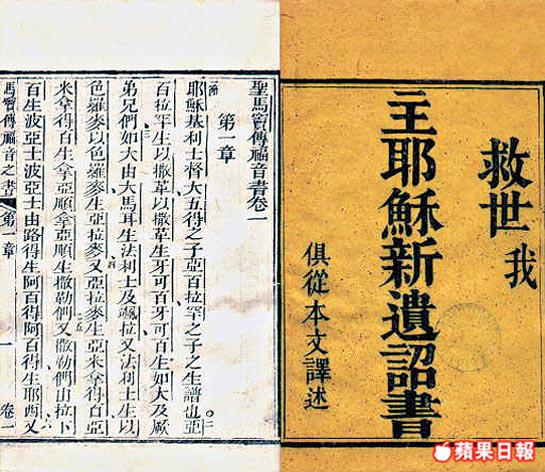 我
救世
主耶穌新遺詔書
俱從本文譯述
聖馬竇傳福音書卷一
第一章
耶穌基利士督大五得之子亞百拉罕之子之生譜也亞
百拉罕生以撒革以撒革生牙可百牙可百生如大及厥
弟兄們如大由大馬耳生法利士及颯拉又法利士生以
色羅麥以色羅麥生亞拉麥又亞拉麥生亞米拿得百亞
米拿得百生拿亞順拿亞順生撒勒們又撒勒們由拉下
百生波亞士波亞士由路得生阿百得阿百得生耶酉又
馬竇傳福音之書 第一章 一 卷一
蘋果日報